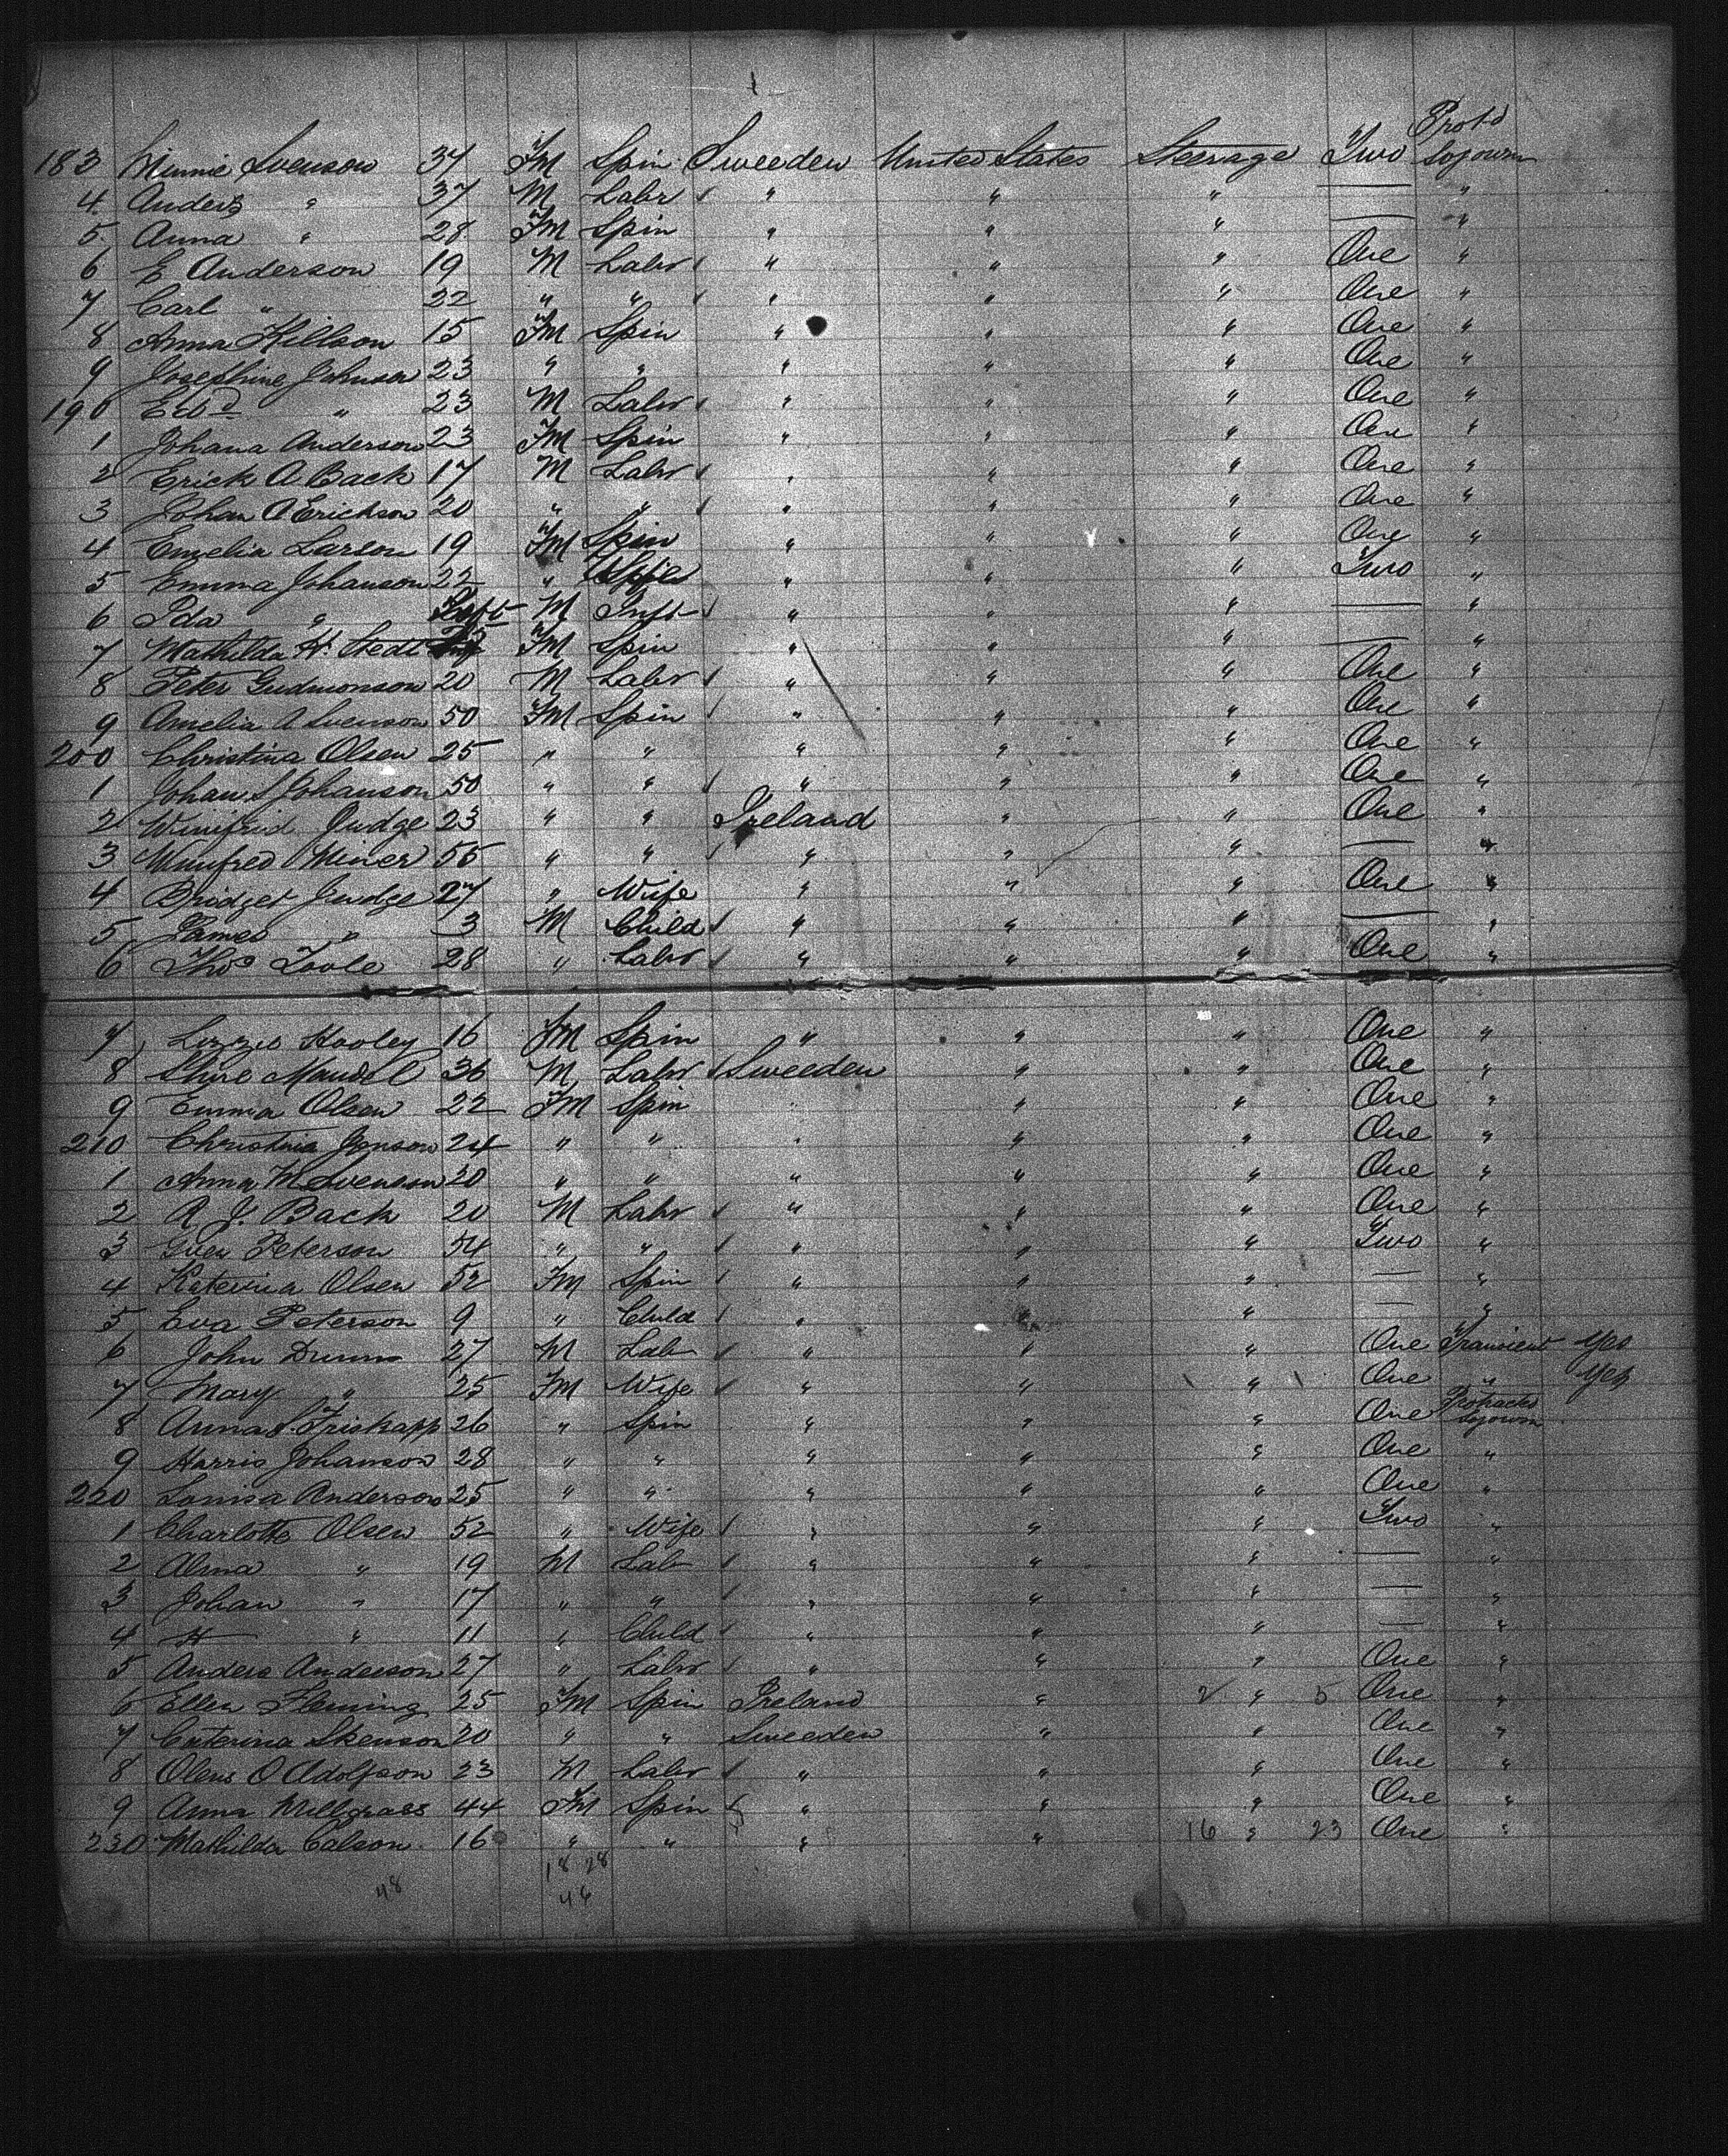 Prot'd
183 Minnie Svenson 34 FM Spin Sweeden United States Steerage Two Sojourn
4 Anders " 37 M Labr " " " — "
5 Anna " 28 FM Spin " " " — "
6 E Anderson 19 M Labr " " " One "
7 Carl " 22 " " " " " One "
8 Anna Killson 15 FM Spin " " " One "
9 Josephine Johnson 23 " " " " " One "
190 " 23 M Labr " " " One "
1 Johana Anderson 23 FM Spin " " " One "
2 Erick A Back 17 M Labr " " " One "
3 Johan A Erickson 20 " " " " " One "
4 Emelia Larson 19 FM Spin " " " One "
5 Emma Johanson 22 " Wife " " " Two "
6 Ida " M Inft " " " — "
7 Mathilda H. Stedt FM Spin " " " — "
8 Peter Gudmonson 20 M Labr " " " One "
9 Amelia A Svenson 50 FM Spin " " " One "
200 Christina Olsen 25 " " " " " One "
1 Johan S Johanson 50 " " " " " One "
2 Winifrid Judge 23 " " Ireland " " One "
3 Winifred Miner 55 " " " " " — "
4 Bridget Judge 27 " Wife " " " One "
5 James " 3 M Child " " " — "
6 Thos Toole 28 " Labr " " " One "
7 Lizzie Hooley 16 FM Spin " " " One "
8 Mandel 36 M Labr Sweeden " " One "
9 Emma Olsen 22 FM Spin " " " One "
210 Christina Jonson 24 " " " " " One "
1 Anna M Svenson 20 " " " " " One "
2 A J. Back 20 M Labr " " " One "
3 Peterson 54 " " " " " Two "
4 Katerina Olsen 52 FM Spin " " " — "
5 Eva Peterson 9 " Child " " " — "
6 John Dunn 27 M Lab " " " One Transient Yes
7 Mary " 25 FM Wife " " " One " Yes
8 Anna S. Friskapp 26 " Spin " " " One Protracted Sojourn
9 Harris Johanson 28 " " " " " One "
220 Louisa Anderson 25 " " " " " One "
1 Charlotte Olsen 52 " Wife " " " Two "
2 Alma " 19 M Lab " " " — "
3 Johan " 17 " " " " " — "
4 H " 11 " Child " " " — "
5 Anders Anderson 27 " Labr " " " One "
6 Ellen Fleming 25 FM Spin Ireland " 2 " 5 One "
7 Caterina Skenson 20 " " Sweeden " " One "
8 Olens O Adolfson 23 M Labr " " " One "
9 Anna Millgrass 44 FM Spin " " " One "
230 Mathilda Calson 16 " " " " 16 " 23 One "
18 28
48 46